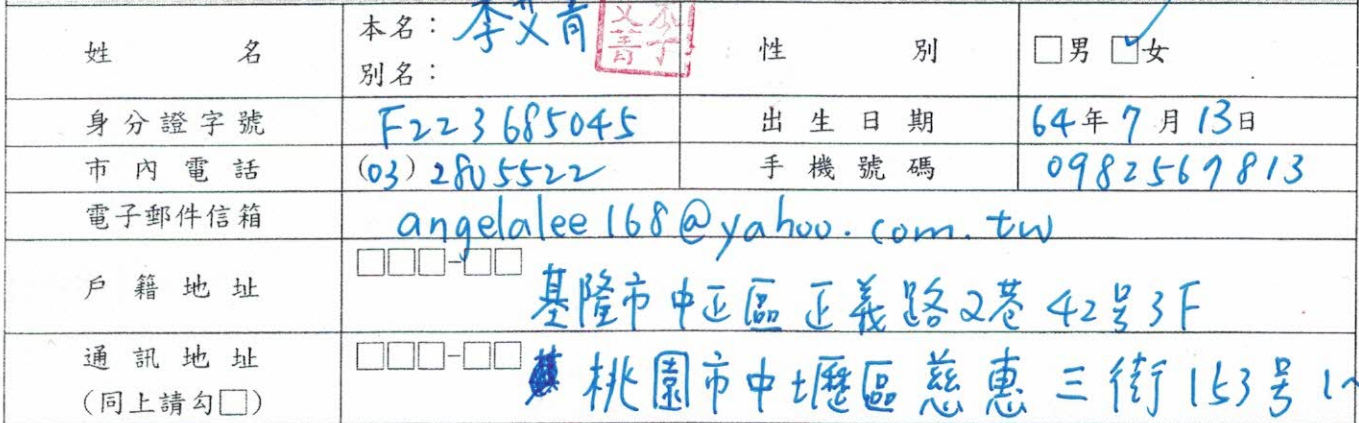 姓名 本名：李艾青 性別 □男 ☑女
別名：
身分證字號 F223685045 出生日期 64年7月13日
市內電話 (03) 2805522 手機號碼 0982567813
電子郵件信箱 angelalee168@yahoo.com.tw
戶籍地址 □□□-□□
基隆市中正區正義路2巷42号3F
通訊地址 □□□-□□
(同上請勾□) 桃園市中壢區慈惠三街153号